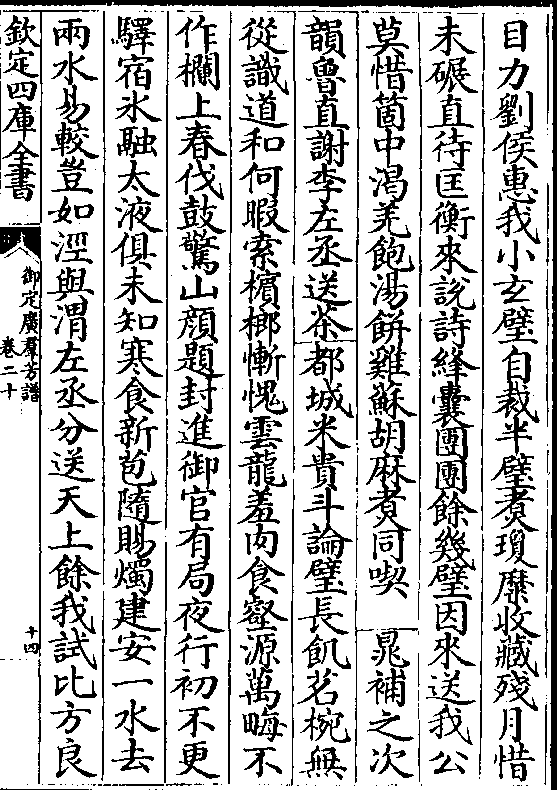 目力劉侯惠我小玄璧自裁半璧煮瓊糜收藏殘月惜
未碾直待匡衡來說詩絳囊團團餘幾璧因來送我公
莫惜箇中渴羌飽湯餅雞蘇胡麻煮同喫　晁補之次
韻魯直謝李左丞送茶都城米貴斗論璧長飢茗椀無
從識道和何暇索檳榔慚愧雲龍羞肉食壑源萬畮不
作欄上春伐鼓驚山顔題封進御官有局夜行初不更
驛宿氷融太液俱未知寒食新苞隨賜燭建安一水去
兩水易較豈如涇與渭左丞分送天上餘我試比方良
欽定四庫全書
御定廣羣芳譜
卷二十
十四